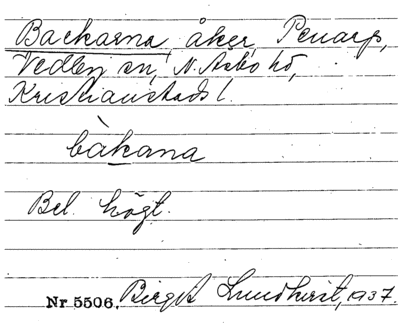 Backarna, åker, Penarp,
Vedby sn, N. Åsbo hd,
Kristianstads l.
bàkana
Bel. högt.
Nr 5506. Birgit Lundkvist, 1937.